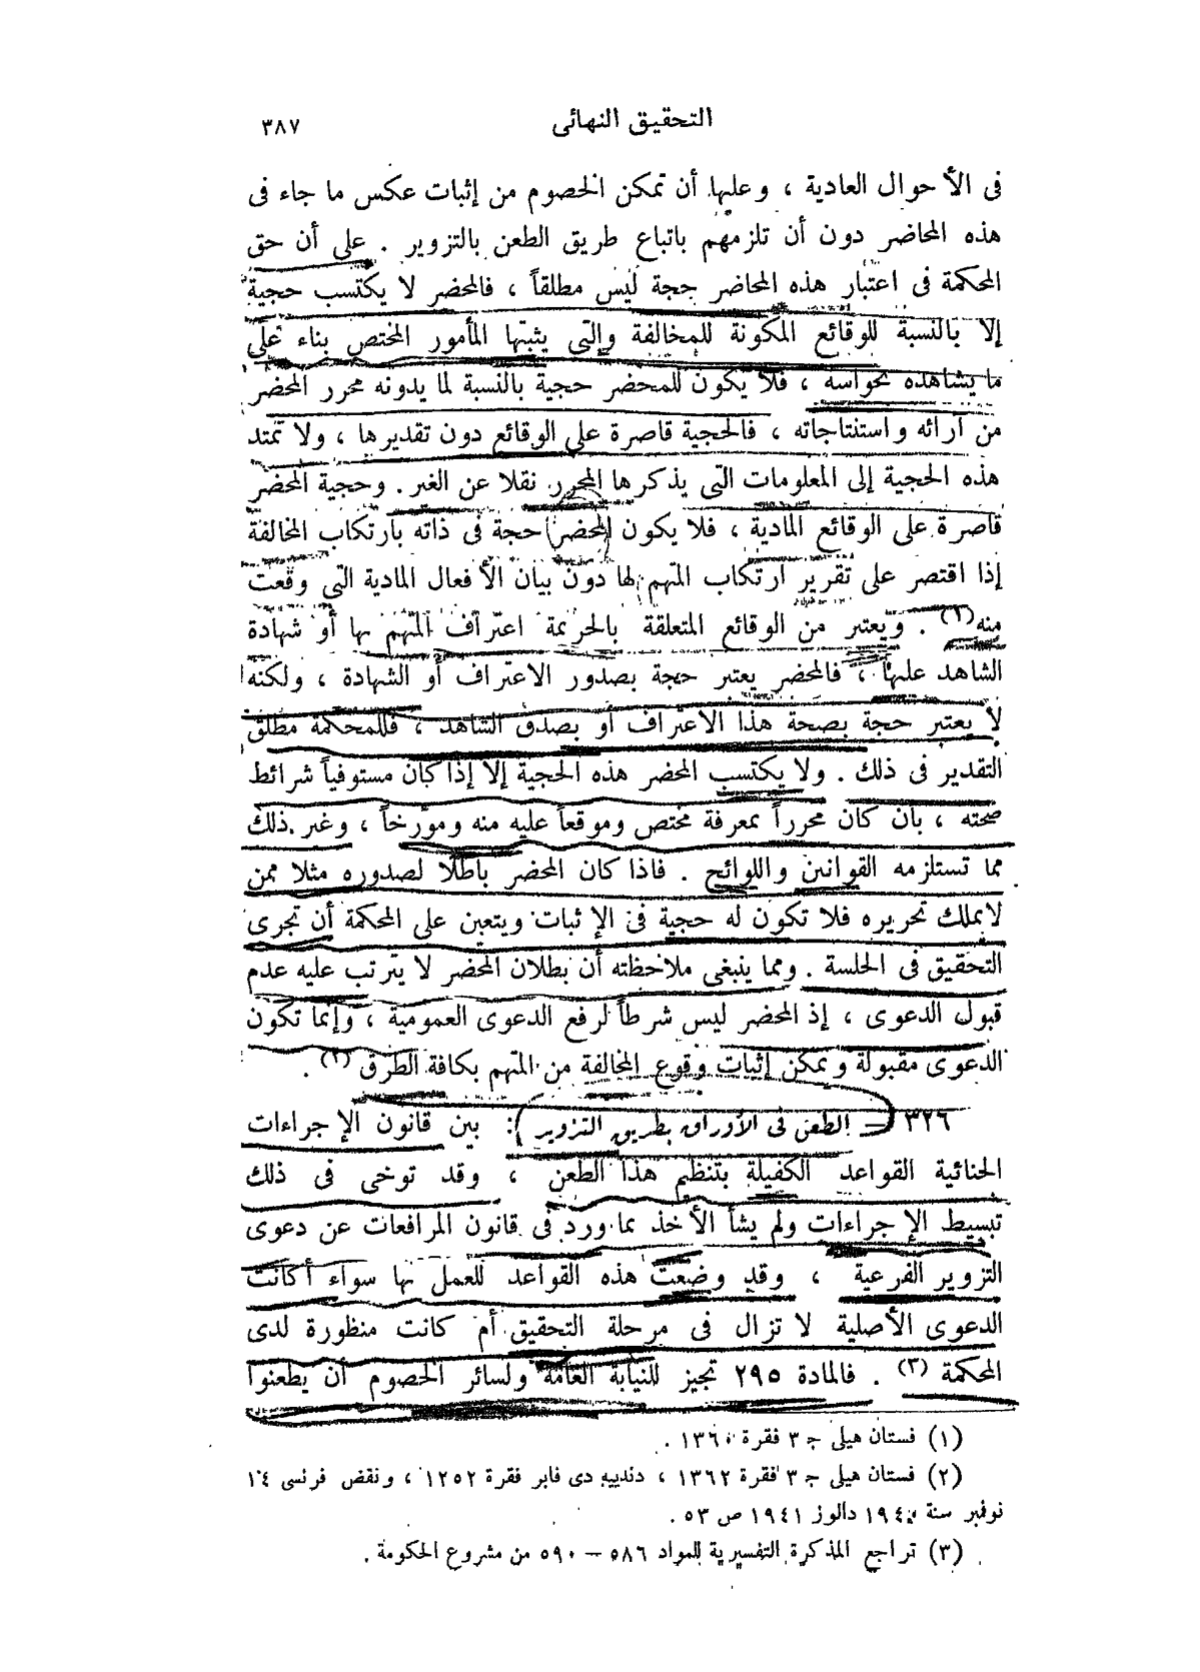 التحقيق النهائى ٣٨٧
فى الأحوال العادية ، وعليها أن تمكن الخصوم من إثبات عكس ما جاء فى
هذه المحاضر دون أن تلزمهم باتباع طريق الطعن بالتزوير . على أن حق
المحكمة فى اعتبار هذه المحاضر حجة ليس مطلقاً ، فالمحضر لا يكتسب حجية
إلا بالنسبة للوقائع المكونة للمخالفة والتى يثبتها المأمور المختص بناء على
ما يشاهده بحواسه ، فلا يكون للمحضر حجية بالنسبة لما يدونه محرر المحضر
من آرائه واستنتاجاته ، فالحجية قاصرة على الوقائع دون تقديرها ، ولا تمتد
هذه الحجية إلى المعلومات التى يذكرها المحرر نقلا عن الغير . وحجية المحضر
قاصرة على الوقائع المادية ، فلا يكون المحضر حجة فى ذاته بارتكاب المخالفة
إذا اقتصر على تقرير ارتكاب المتهم لها دون بيان الأفعال المادية التى وقعت
منه (١) . ويعتبر من الوقائع المتعلقة بالجريمة اعتراف المتهم بها أو شهادة
الشاهد عليها ، فالمحضر يعتبر حجة بصدور الاعتراف أو الشهادة ، ولكنه
لا يعتبر حجة بصحة هذا الاعتراف أو بصدق الشاهد ، فللمحكمة مطلق
التقدير فى ذلك . ولا يكتسب المحضر هذه الحجية إلا إذا كان مستوفياً شرائط
صحته ، بأن كان محرراً بمعرفة مختص وموقعاً عليه منه ومؤرخاً ، وغير ذلك
مما تستلزمه القوانين واللوائح . فاذا كان المحضر باطلا لصدوره مثلا ممن
لا يملك تحريره فلا تكون له حجية فى الإثبات ويتعين على المحكمة أن تجرى
التحقيق فى الجلسة . ومما ينبغى ملاحظته أن بطلان المحضر لا يترتب عليه عدم
قبول الدعوى ، إذ المحضر ليس شرطاً لرفع الدعوى العمومية ، وإنما تكون
الدعوى مقبولة ويمكن إثبات وقوع المخالفة من المتهم بكافة الطرق (٢) .
٣٢٦ — الطعن فى الأوراق بطريق التزوير : بين قانون الإجراءات
الجنائية القواعد الكفيلة بتنظيم هذا الطعن ، وقد توخى فى ذلك
تبسيط الإجراءات ولم يشأ الأخذ بما ورد فى قانون المرافعات عن دعوى
التزوير الفرعية ، وقد وضعت هذه القواعد للعمل بها سواء أكانت
الدعوى الأصلية لا تزال فى مرحلة التحقيق أم كانت منظورة لدى
المحكمة (٣) . فالمادة ٢٩٥ تجيز للنيابة العامة ولسائر الخصوم أن يطعنوا
(١) فستان هيلى ج ٣ فقرة ١٣٦٠ .
(٢) فستان هيلى ج ٣ فقرة ١٣٦٢ ، دندييه دى فابر فقرة ١٢٥٢ ، ونقض فرنسى ١٤
نوفمبر سنة ١٩٤٠ دالوز ١٩٤١ ص ٥٣ .
(٣) تراجع المذكرة التفسيرية للمواد ٥٨٦ — ٥٩٠ من مشروع الحكومة .